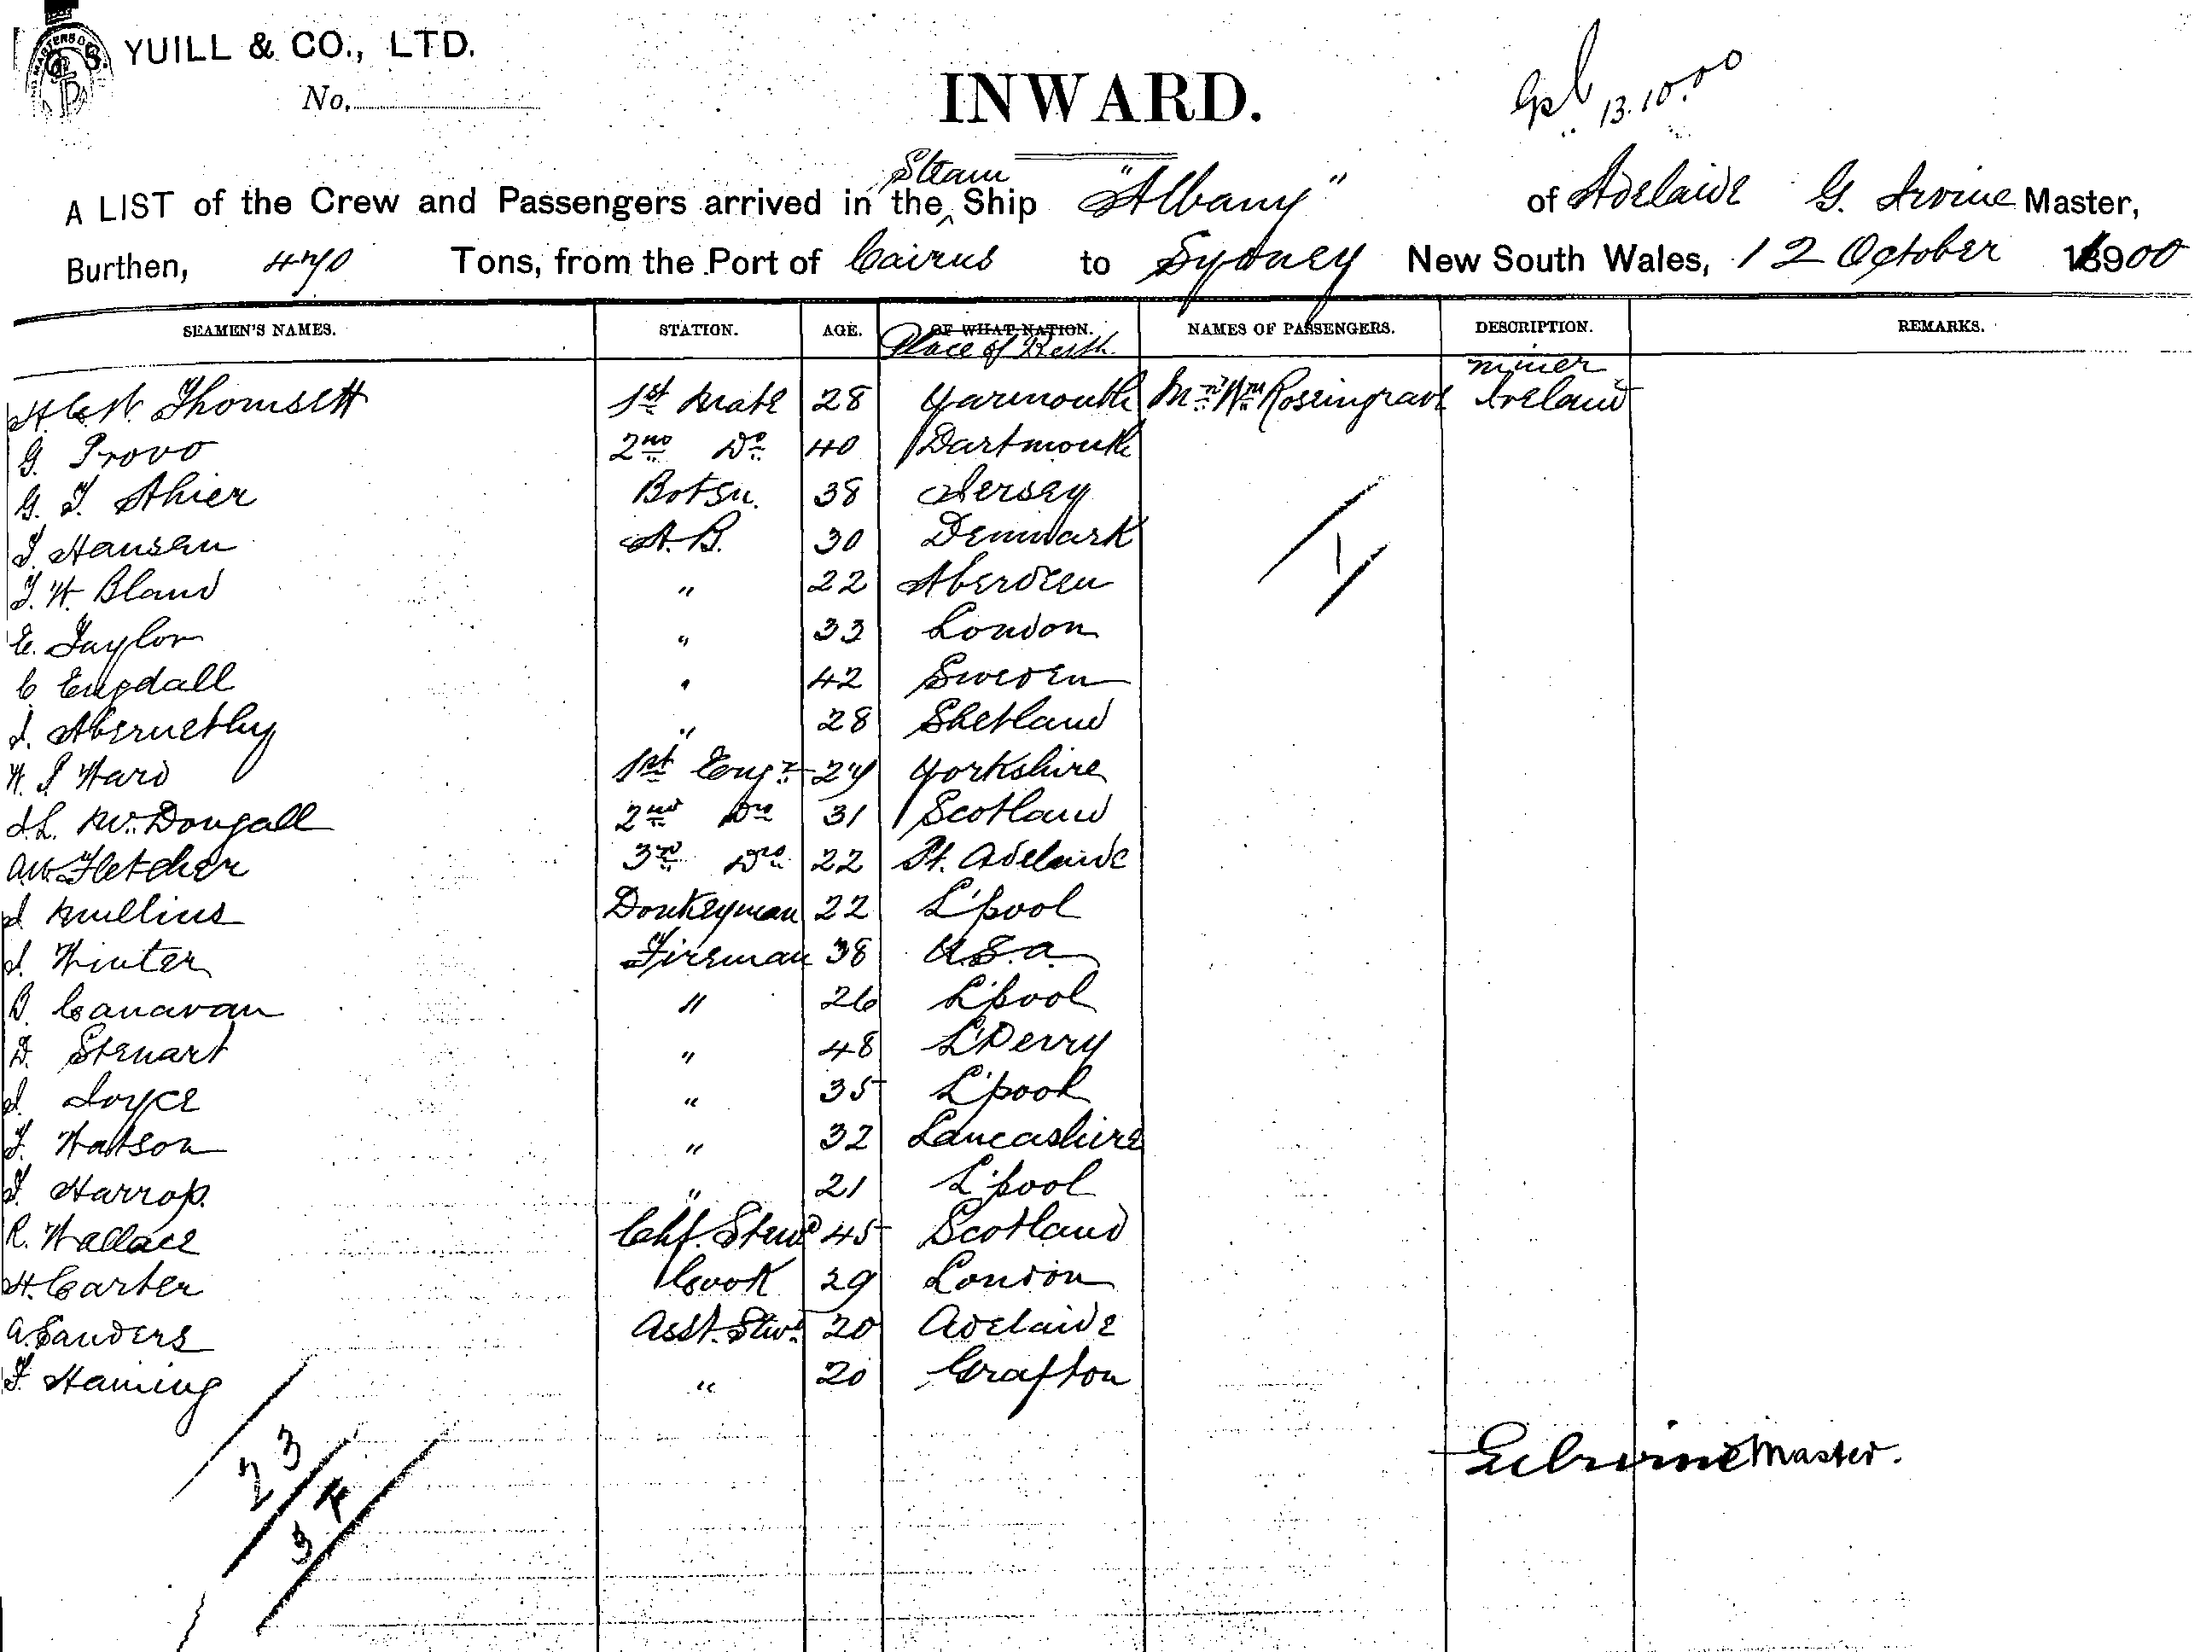 G. S. YUILL & CO., LTD.
No.
INWARD.
13.10.00
Steam
A LIST of the Crew and Passengers arrived in the ^ Ship "Albany" of Adelaide G. Irvine Master,
Burthen, 470 Tons, from the Port of Cairns to Sydney New South Wales, 12 October 1900
SEAMEN'S NAMES. STATION. AGE. OF WHAT NATION. NAMES OF PASSENGERS. DESCRIPTION. REMARKS.
Place of Birth
miner
H. C. W. Thomsett 1st Mate 28 Yarmouth Mr Wm Rosengrave Ireland
G. Provo 2nd Do 40 Dartmouth
G. J. Ahier Botsn. 38 Jersey
J. Hansen A.B. 30 Denmark
J. W. Bland " 22 Aberdeen
E. Taylor " 33 London
C Engdall " 42 Sweden
J. Abernethy " 28 Shetland
W. J Ward 1st Engr 27 Yorkshire
J. L. McDougall 2nd Do 31 Scotland
A.W. Fletcher 3rd Do 22 Pt. Adelaide
J Mullins Donkeyman 22 L'pool
J. Winter Fireman 38 U.S.A.
B. Canavan " 26 L'pool
D. Stewart " 48 L'Derry
J. Joyce " 35 L'pool
J. Watson " 32 Lancashire
J. Harrop. " 21 L'pool
R. Wallace Chf. Stewd 45 Scotland
H. Carter Cook 29 London
A. Sanders Asst. Stwd 20 Adelaide
F. Haining " 20 Grafton
1
23
Irvine Master.